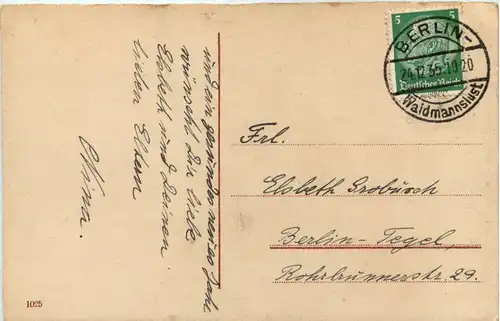 und ein gesundes neues Jahr
wünscht Dir liebe
Elsbeth und Deinen
lieben Eltern
5 5
Deutsches Reich
BERLIN-
24.12.35.-19 20
Waidmannslust
Frl.
Elsbeth
Berlin-Tegel
Rohrbrunnerstr. 29.
1025